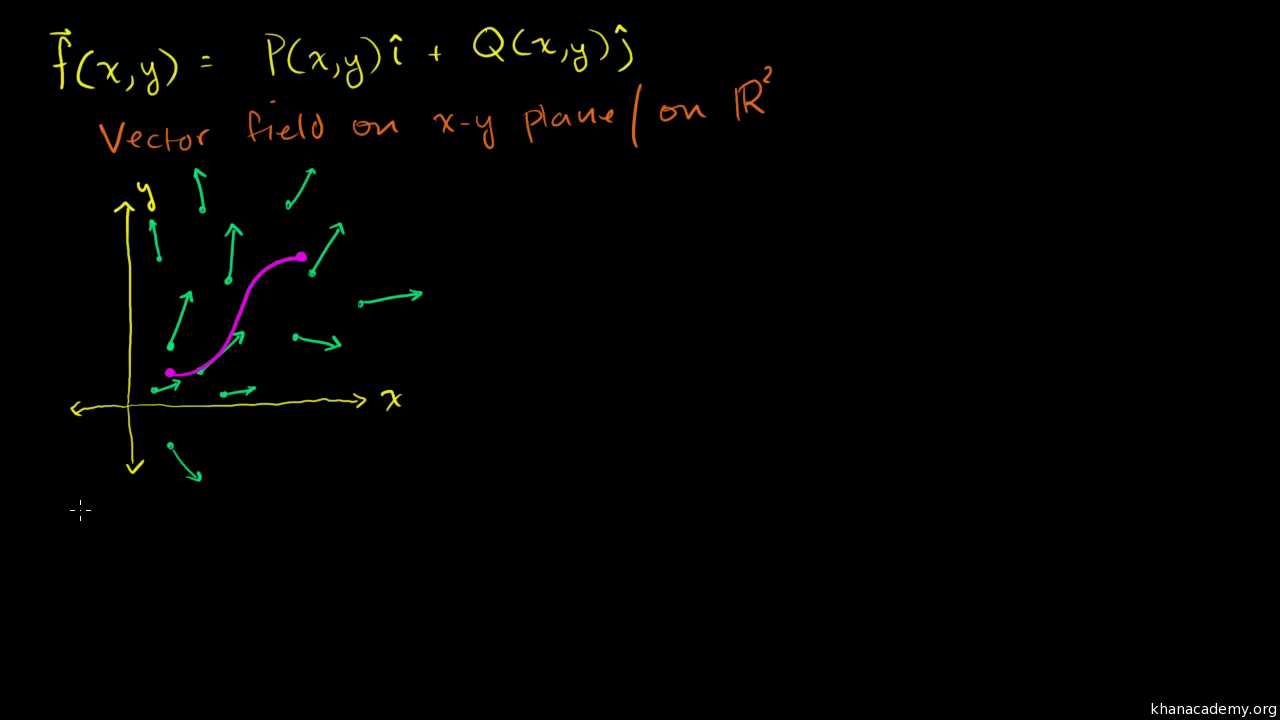 f⃗(x,y) = P(x,y)î + Q(x,y)ĵ
Vector field on x-y plane / on ℝ²
y
x
khanacademy.org